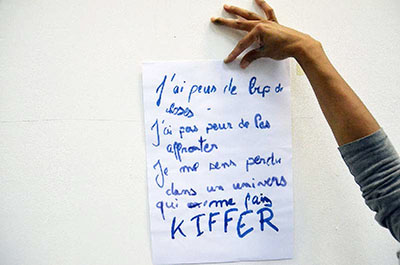 J'ai peur de bcp de
choses.
J'ai pas peur de les
affronter
Je me sens perdu
dans un univers
qui me fais
KIFFER